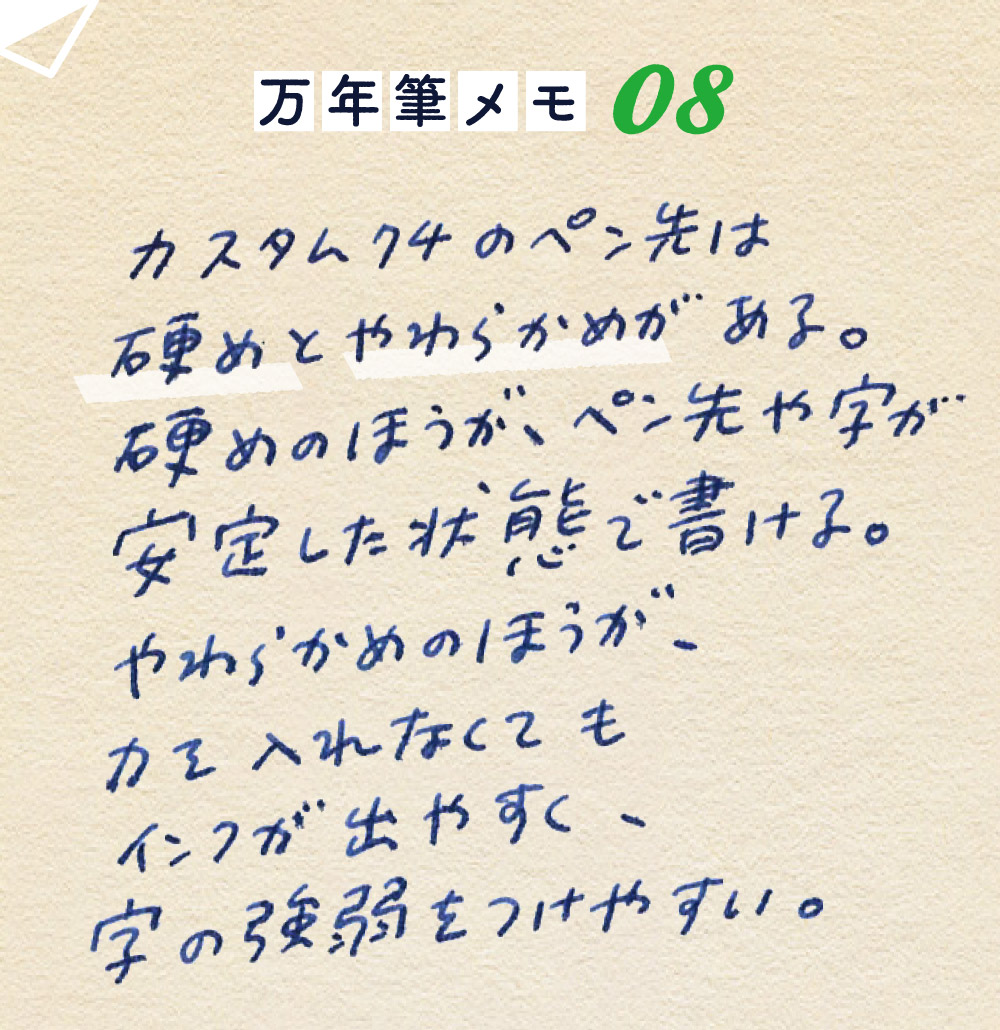 万年筆メモ 08
カスタム74のペン先は
硬めとやわらかめがある。
硬めのほうが、ペン先や字が
安定した状態で書ける。
やわらかめのほうが、
力を入れなくても
インクが出やすく、
字の強弱をつけやすい。